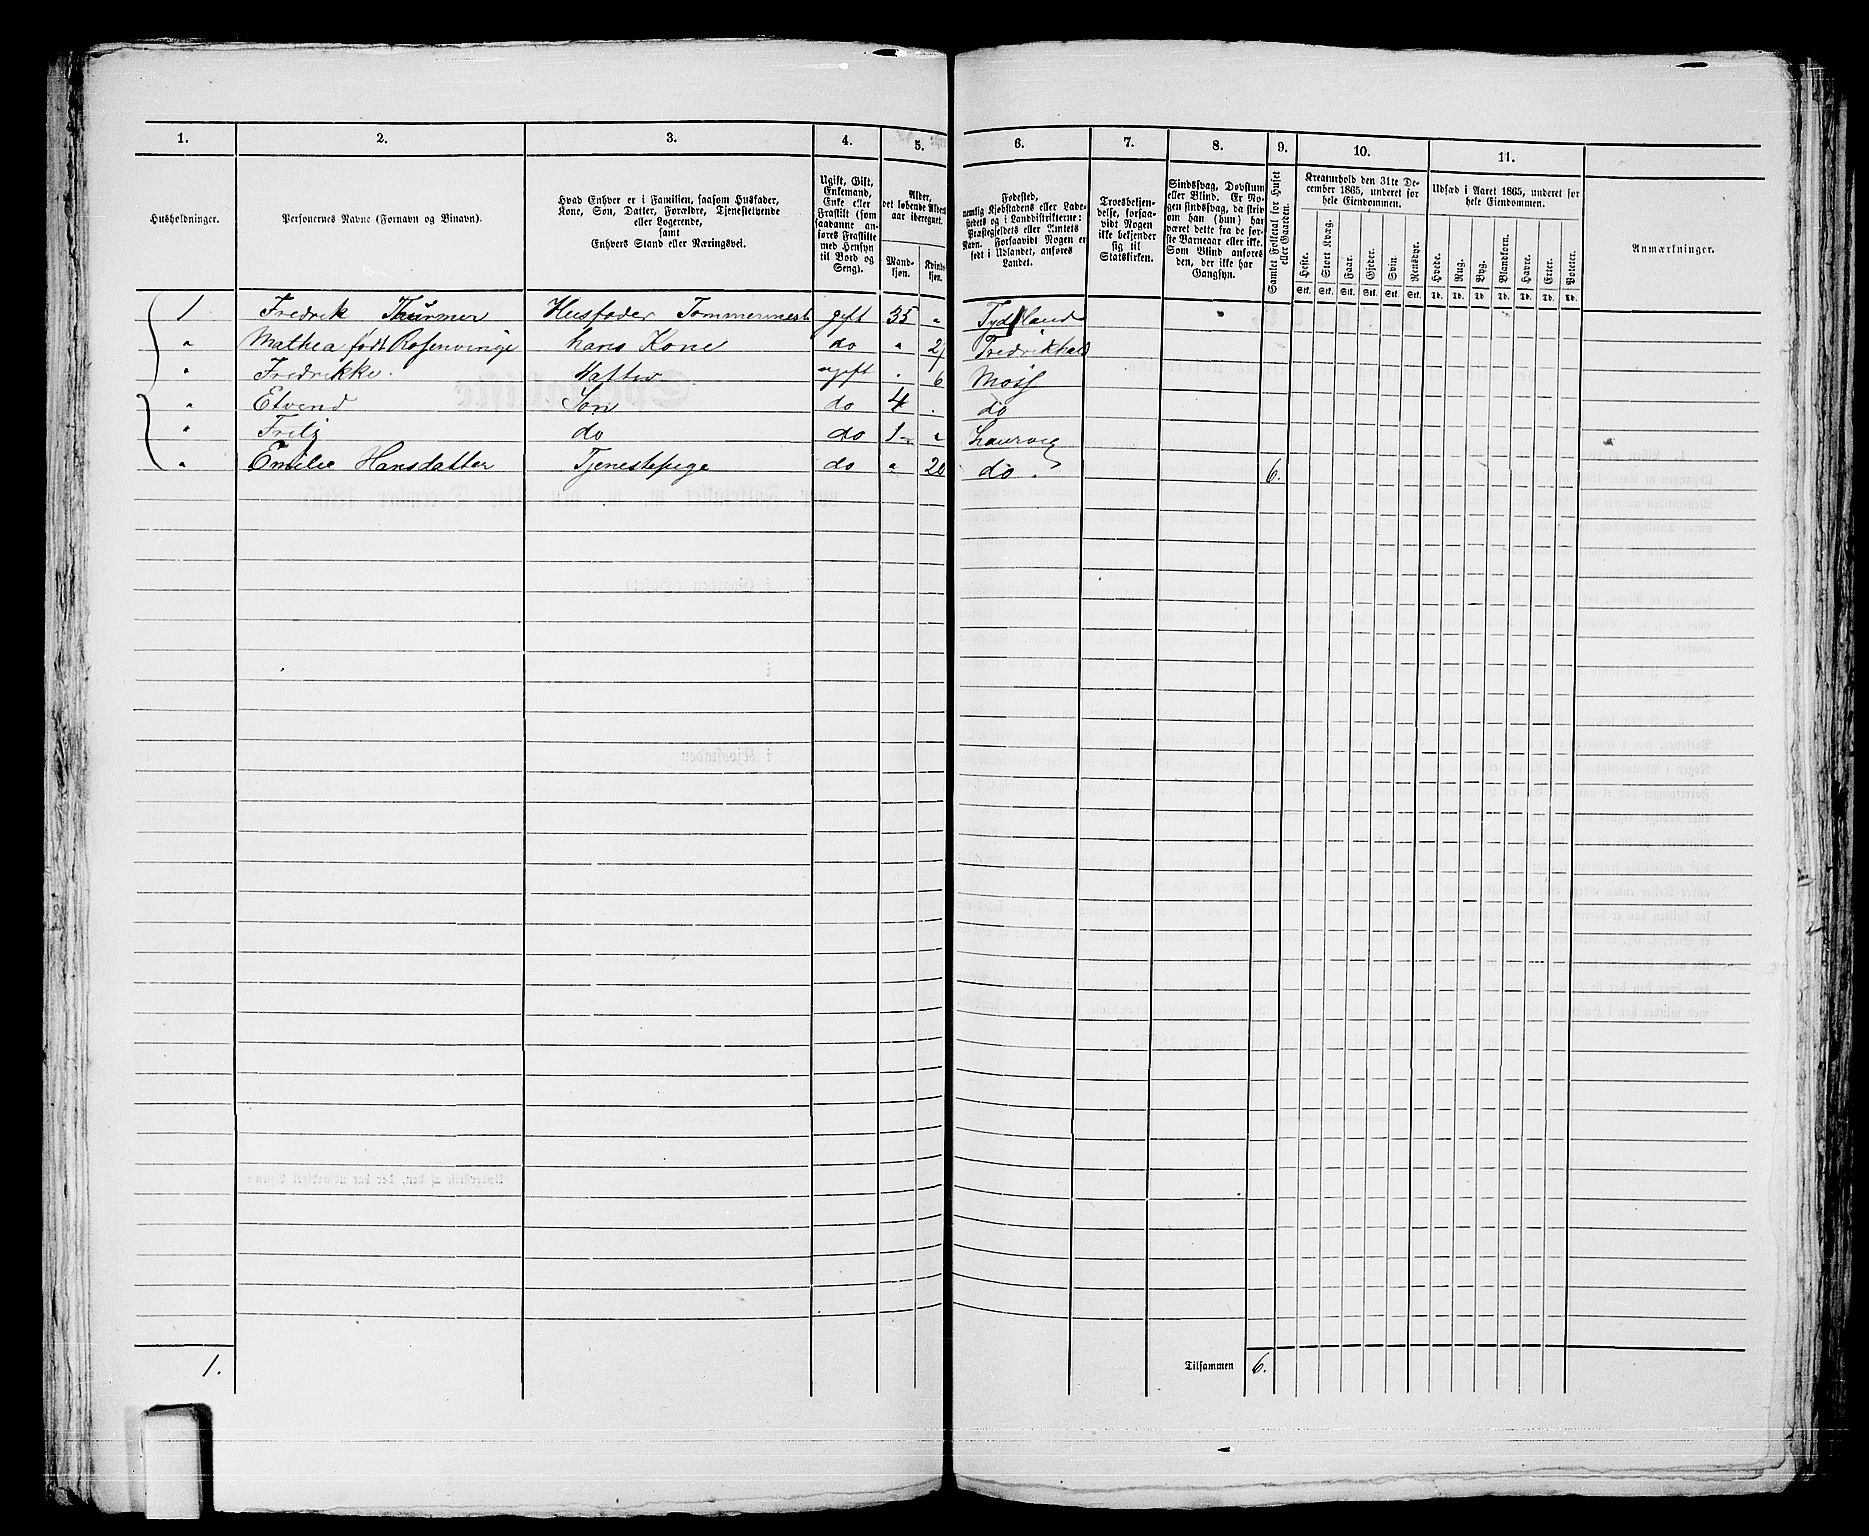 1. 2. 3. 4. 5. 6. 7. 8. 9. 10. 11.
Husholdninger.
Personernes Navne (Fornavn og Binavn).
Hvad Enhver er i Familien, saasom Husfader,
Kone, Søn, Datter, Forældre, Tjenestetyende
eller Logerende,
samt
Enhvers Stand eller Næringsvei.
Ugift, Gift,
Enkemand,
Enke eller
Fraskilt (som
saadanne anføres
Fraskilte
med Hensyn
til Bord og
Seng).
Alder,
det løbende Alders-
aar iberegnet.
Mand-
kjøn.
Kvinde-
kjøn.
Fødested,
nemlig Kjøbstadens eller Lade-
stedets og i Landdistrikterne:
Præstegjeldets eller Amtets
Navn. Forsaavidt Nogen er
født i Udlandet, anføres
Landet.
Troesbekjen-
delse, forsaa-
vidt Nogen
ikke bekjender
sig til
Statskirken.
Sindssvag, Døvstum
eller Blind. Er No-
gen sindssvag, da skriv
om han (hun) har
været dette fra de før-
ste Barneaar eller ikke.
Som Blind anføres
den, der ikke har
Gangsyn.
Samlet Folketal for Huset
eller Gaarden.
Kreaturhold den 31te De-
cember 1865, underet for
hele Eiendommen.
Heste. Stort Kvæg. Faar. Gjeder. Svin. Rensdyr.
Stk. Stk. Stk. Stk. Stk. Stk.
Udsæd i Aaret 1865, underet for
hele Eiendommen.
Hvede. Rug. Byg. Blandkorn. Havre. Erter. Poteter.
Td. Td. Td. Td. Td. Td. Td.
Anmærkninger.
1 Fredrik Thurmer Husfader Tømmermest gift 35 " Tydskland
" Mathea født Rosenvinge hans Kone do " Fredrikhald
" Fredrikke Datter ugift " 6 Moss
" Etvend Søn do 4 " do
" Frits do do 1 " Laurvig
" Emilie Hansdatter Tjenestepige do " 20 do 6.
1. Tilsammen 6.